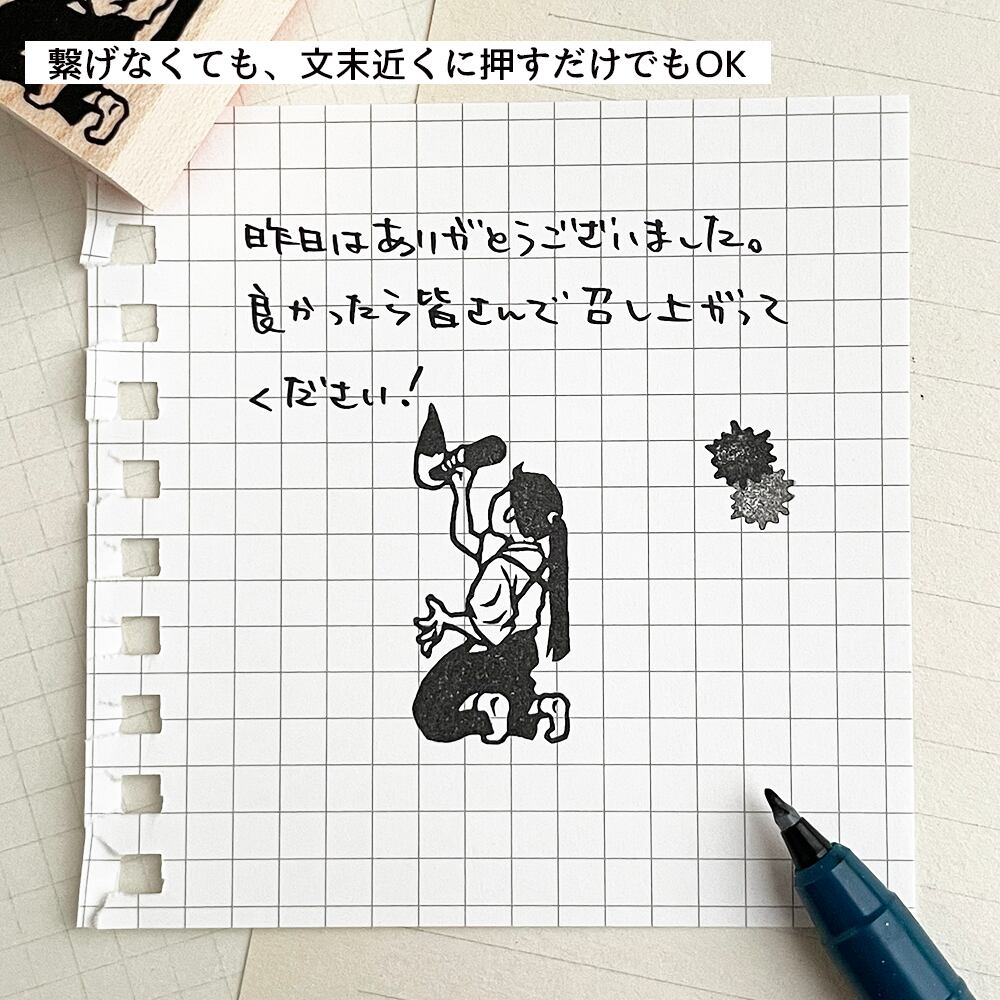 繋げなくても、文末近くに押すだけでもOK
昨日はありがとうございました。
良かったら皆さんで召し上がって
ください!